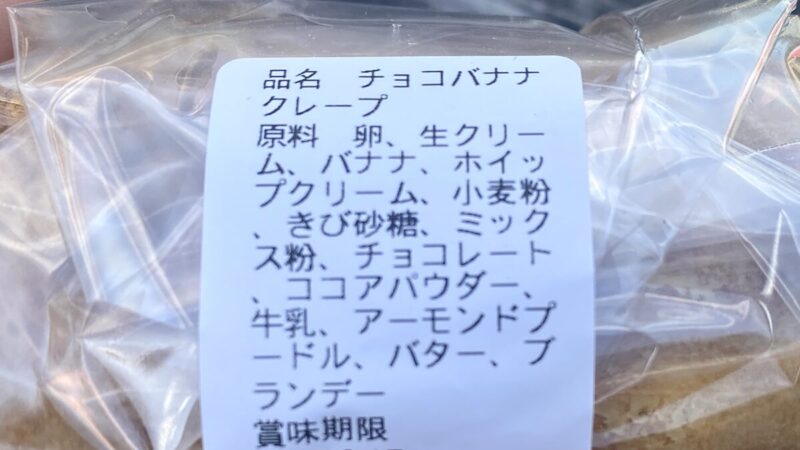 品名　チョコバナナ
クレープ
原料　卵、生クリー
ム、バナナ、ホイッ
プクリーム、小麦粉
、きび砂糖、ミック
ス粉、チョコレート
、ココアパウダー、
牛乳、アーモンドプ
ードル、バター、ブ
ランデー
賞味期限